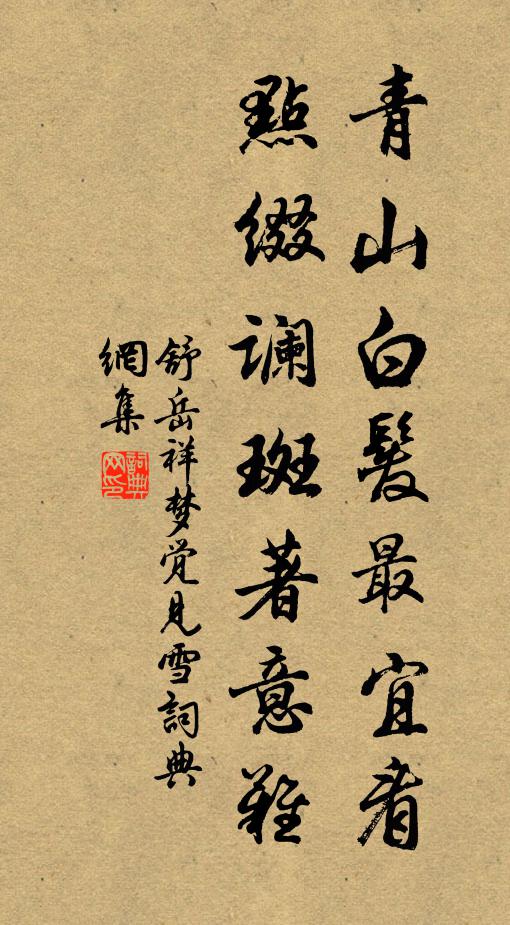 青山白髮最宜看
點缀谰斑著意難
舒岳祥梦觉見雪詞典
網集
詞典网印